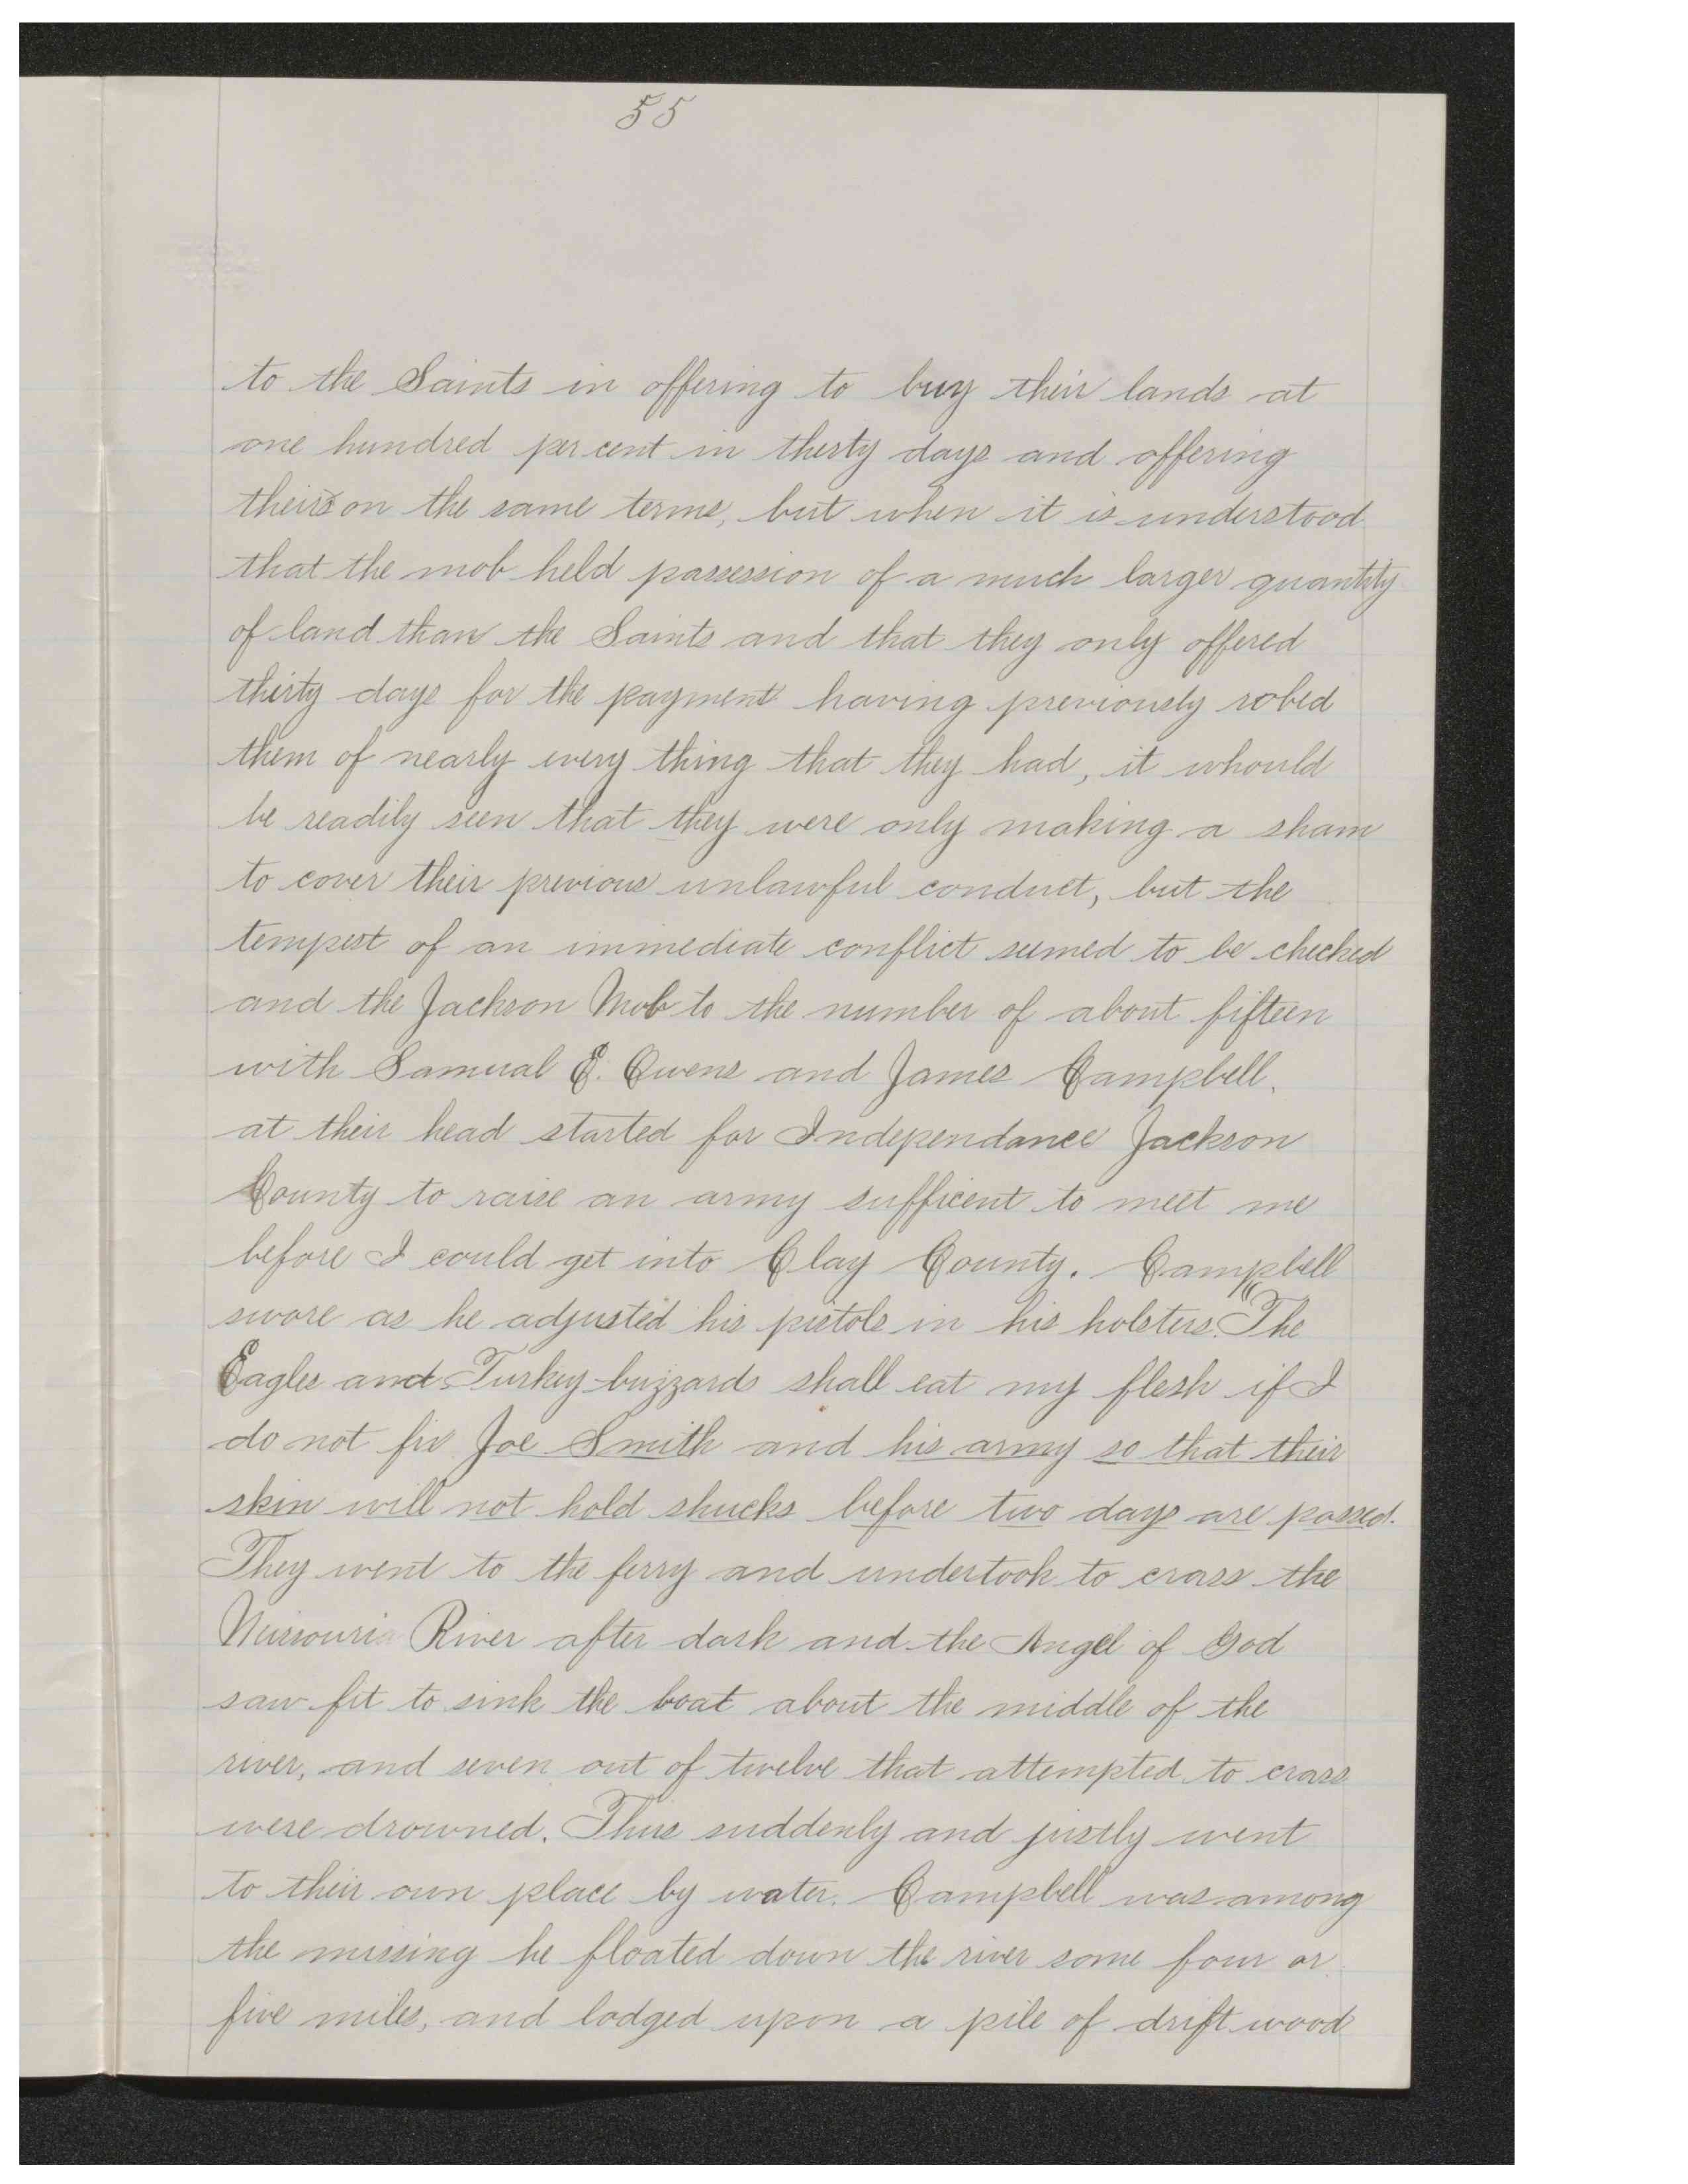 55
to the Saints in offering to buy their lands at
one hundred per cent in thirty days and offering
theirs on the same terms, but when it is understood
that the mob held possession of a much larger quantity
of land than the Saints and that they only offered
thirty days for the payment having previously robed
them of nearly every thing that they had, it whould
be readily seen that they were only making a sham
to cover their previous unlawful conduct, but the
tempest of an immediate conflict seemed to be checked
and the Jackson Mob to the number of about fifteen
with Samual E. Owens and James Campbell.
at their head started for Independance Jackson
County to raise an army sufficent to meet me
before I could get into Clay County. Campbell
swore as he adjusted his pistols in his holsters. "The
Eagles and Turkey-buzzards shall eat my flesh if I
do not fix Joe Smith and his army so that their
skin will not hold shucks before two days are passed.
They went to the ferry and undertook to cross the
Missouria River after dark and the Angel of God
saw fit to sink the boat about the middle of the
river, and seven out of twelve that attempted to cross
were drowned. Thus suddenly and justly went
to their own place by water. Campbell was among
the missing he floated down the river some four or
five miles, and lodged upon a pile of drift wood